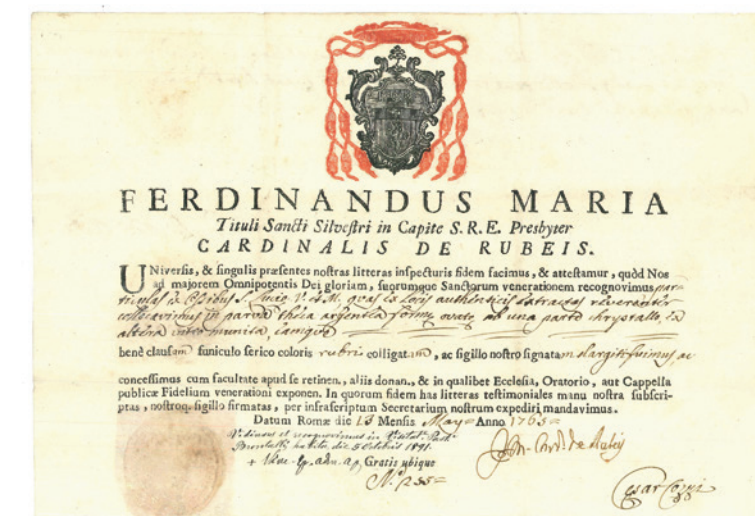 FERDINANDUS MARIA
Tituli Sancti Silvestri in Capite S. R. E. Presbyter
CARDINALIS DE RUBEIS.
UNiversis, & singulis præsentes nostras litteras inspecturis fidem facimus, & attestamur, quòd Nos
ad majorem Omnipotentis Dei gloriam, suorumque Sanctorum venerationem recognovimus par-
ticulas ex Ossibus S. Luciæ V. et M. quas ex Locis authenticis extractas reverenter
collocavimus in parva theca argentea formæ ovatæ ab una parte chrystallo, ex
altera munita, eamque
benè clausam funiculo serico coloris rubri colligatam, ac sigillo nostro signatam ac
concessimus cum facultate apud se retinen., aliis donan., & in qualibet Ecclesia, Oratorio, aut Cappella
publicæ Fidelium venerationi exponen. In quorum fidem has litteras testimoniales manu nostra subscri-
ptas, nostroq. sigillo firmatas, per infrascriptum Secretarium nostrum expediri mandavimus.
Datum Romæ die 13 Mensis May Anno 1765
Vidimus et recognovimus in
habita die 5 Octobris 1891.
Gratis ubique
N.° 255
Card. de Rubeis
Cesar